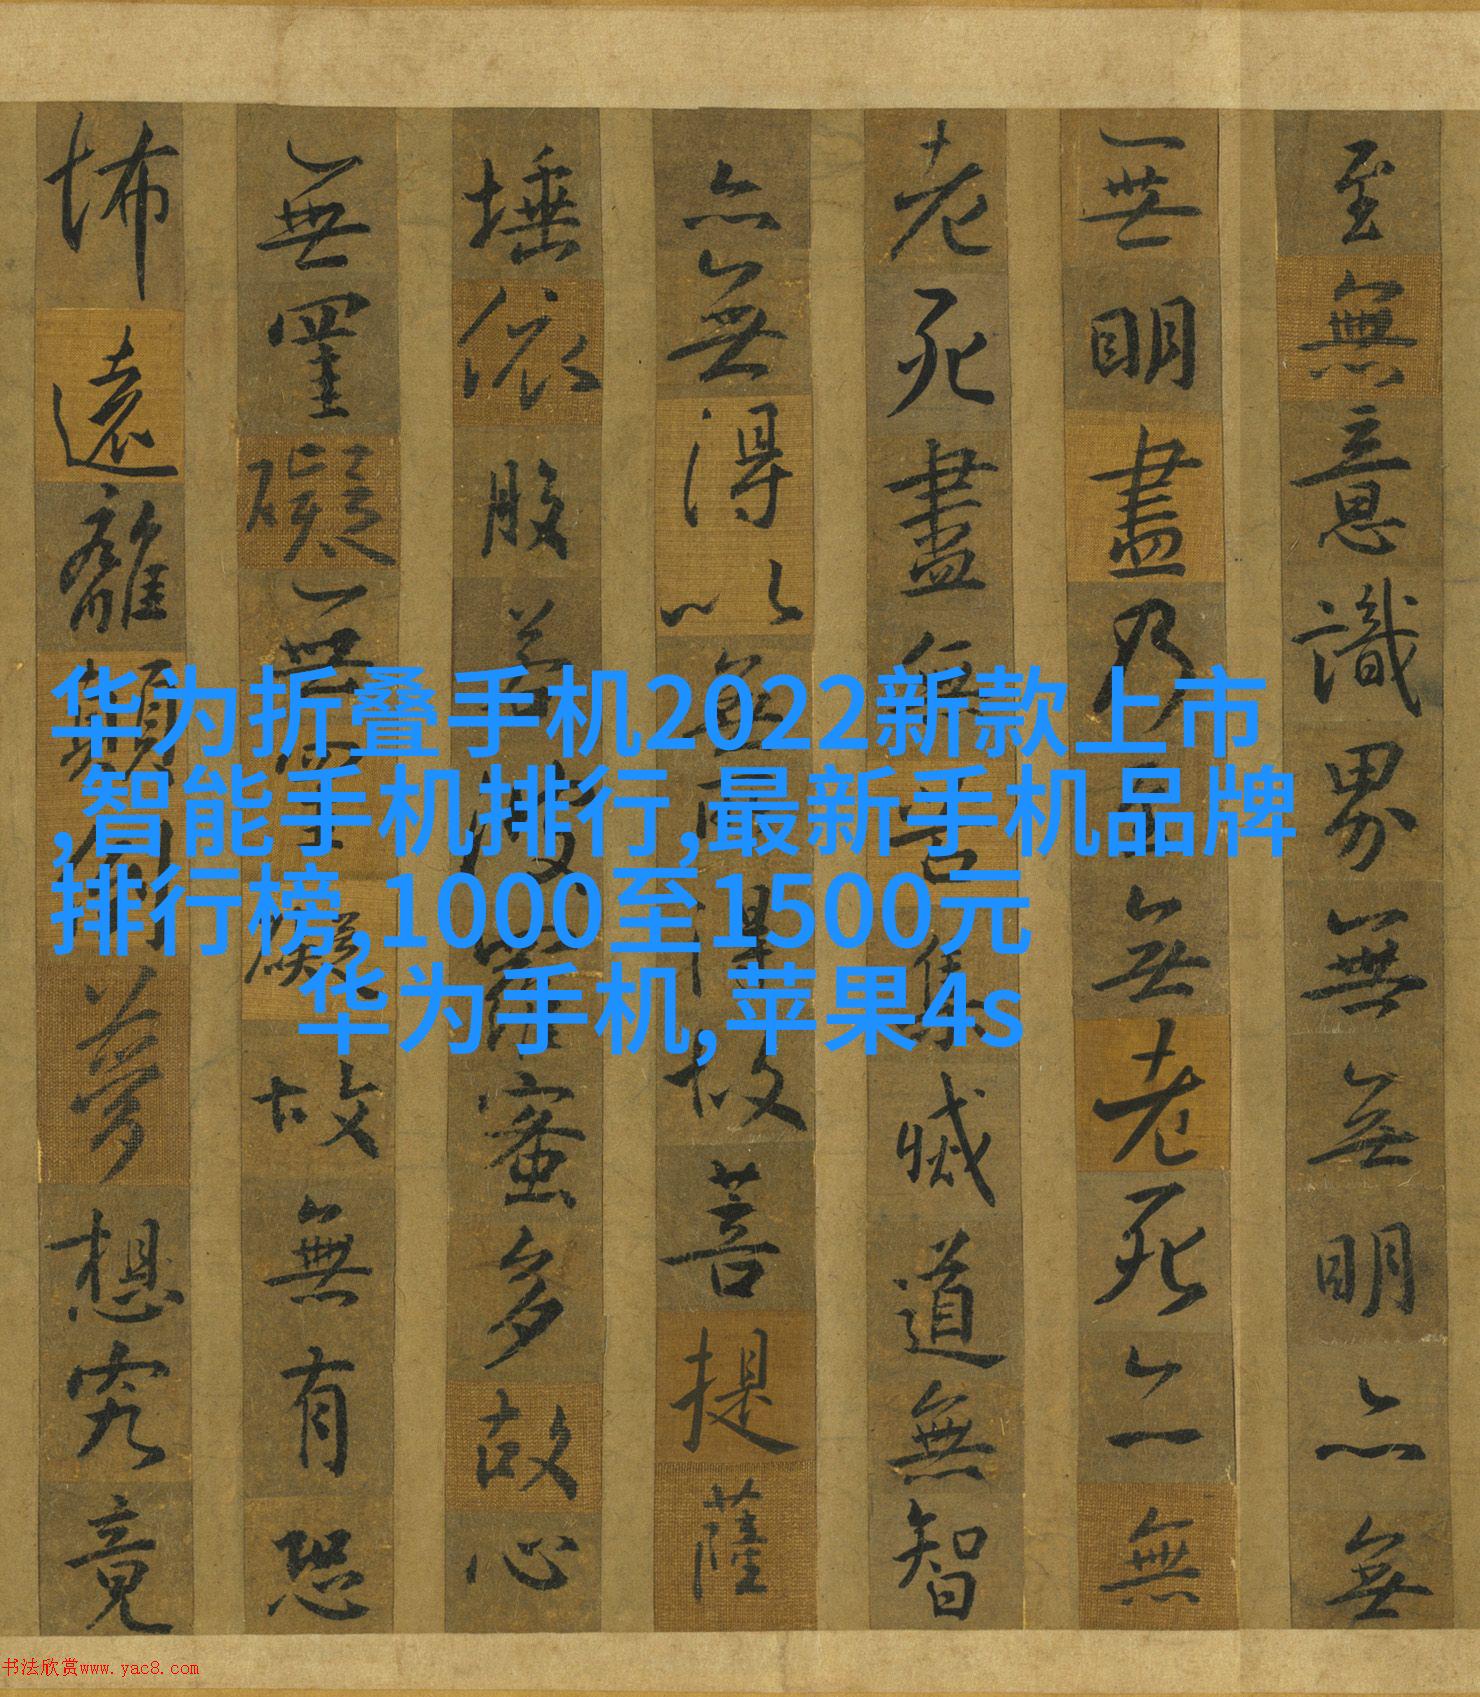 至無意識界無無明亦無
無明盡乃至無老死亦無
老死盡無苦集滅道無智
亦無得以無所得故菩提薩
埵依般若波羅蜜多故心
無罣礙無罣礙故無有恐
怖遠離顛倒夢想究竟
华为折叠手机2022新款上市
,智能手机排行,最新手机品牌
排行榜,1000至1500元
华为手机,苹果4s
书法欣赏www.yac8.com